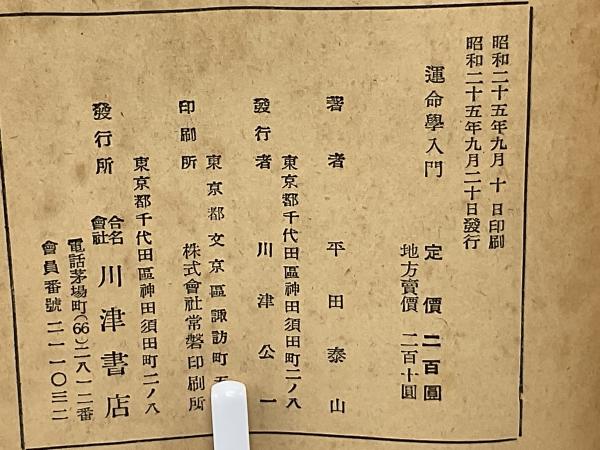 昭和二十五年九月 十 日印刷
昭和二十五年九月二十日發行
運命學入門 定價 二百圓
地方賣價 二百十圓
著者 平田泰山
東京都千代田區神田須田町二ノ八
發行者 川津公一
東京都文京區諏訪町
印刷所 株式會社常磐印刷所
東京都千代田區神田須田町二ノ八
發行所 合名會社 川津書店
電話茅場町(66)二八一二番
會員番號 二一一〇三二